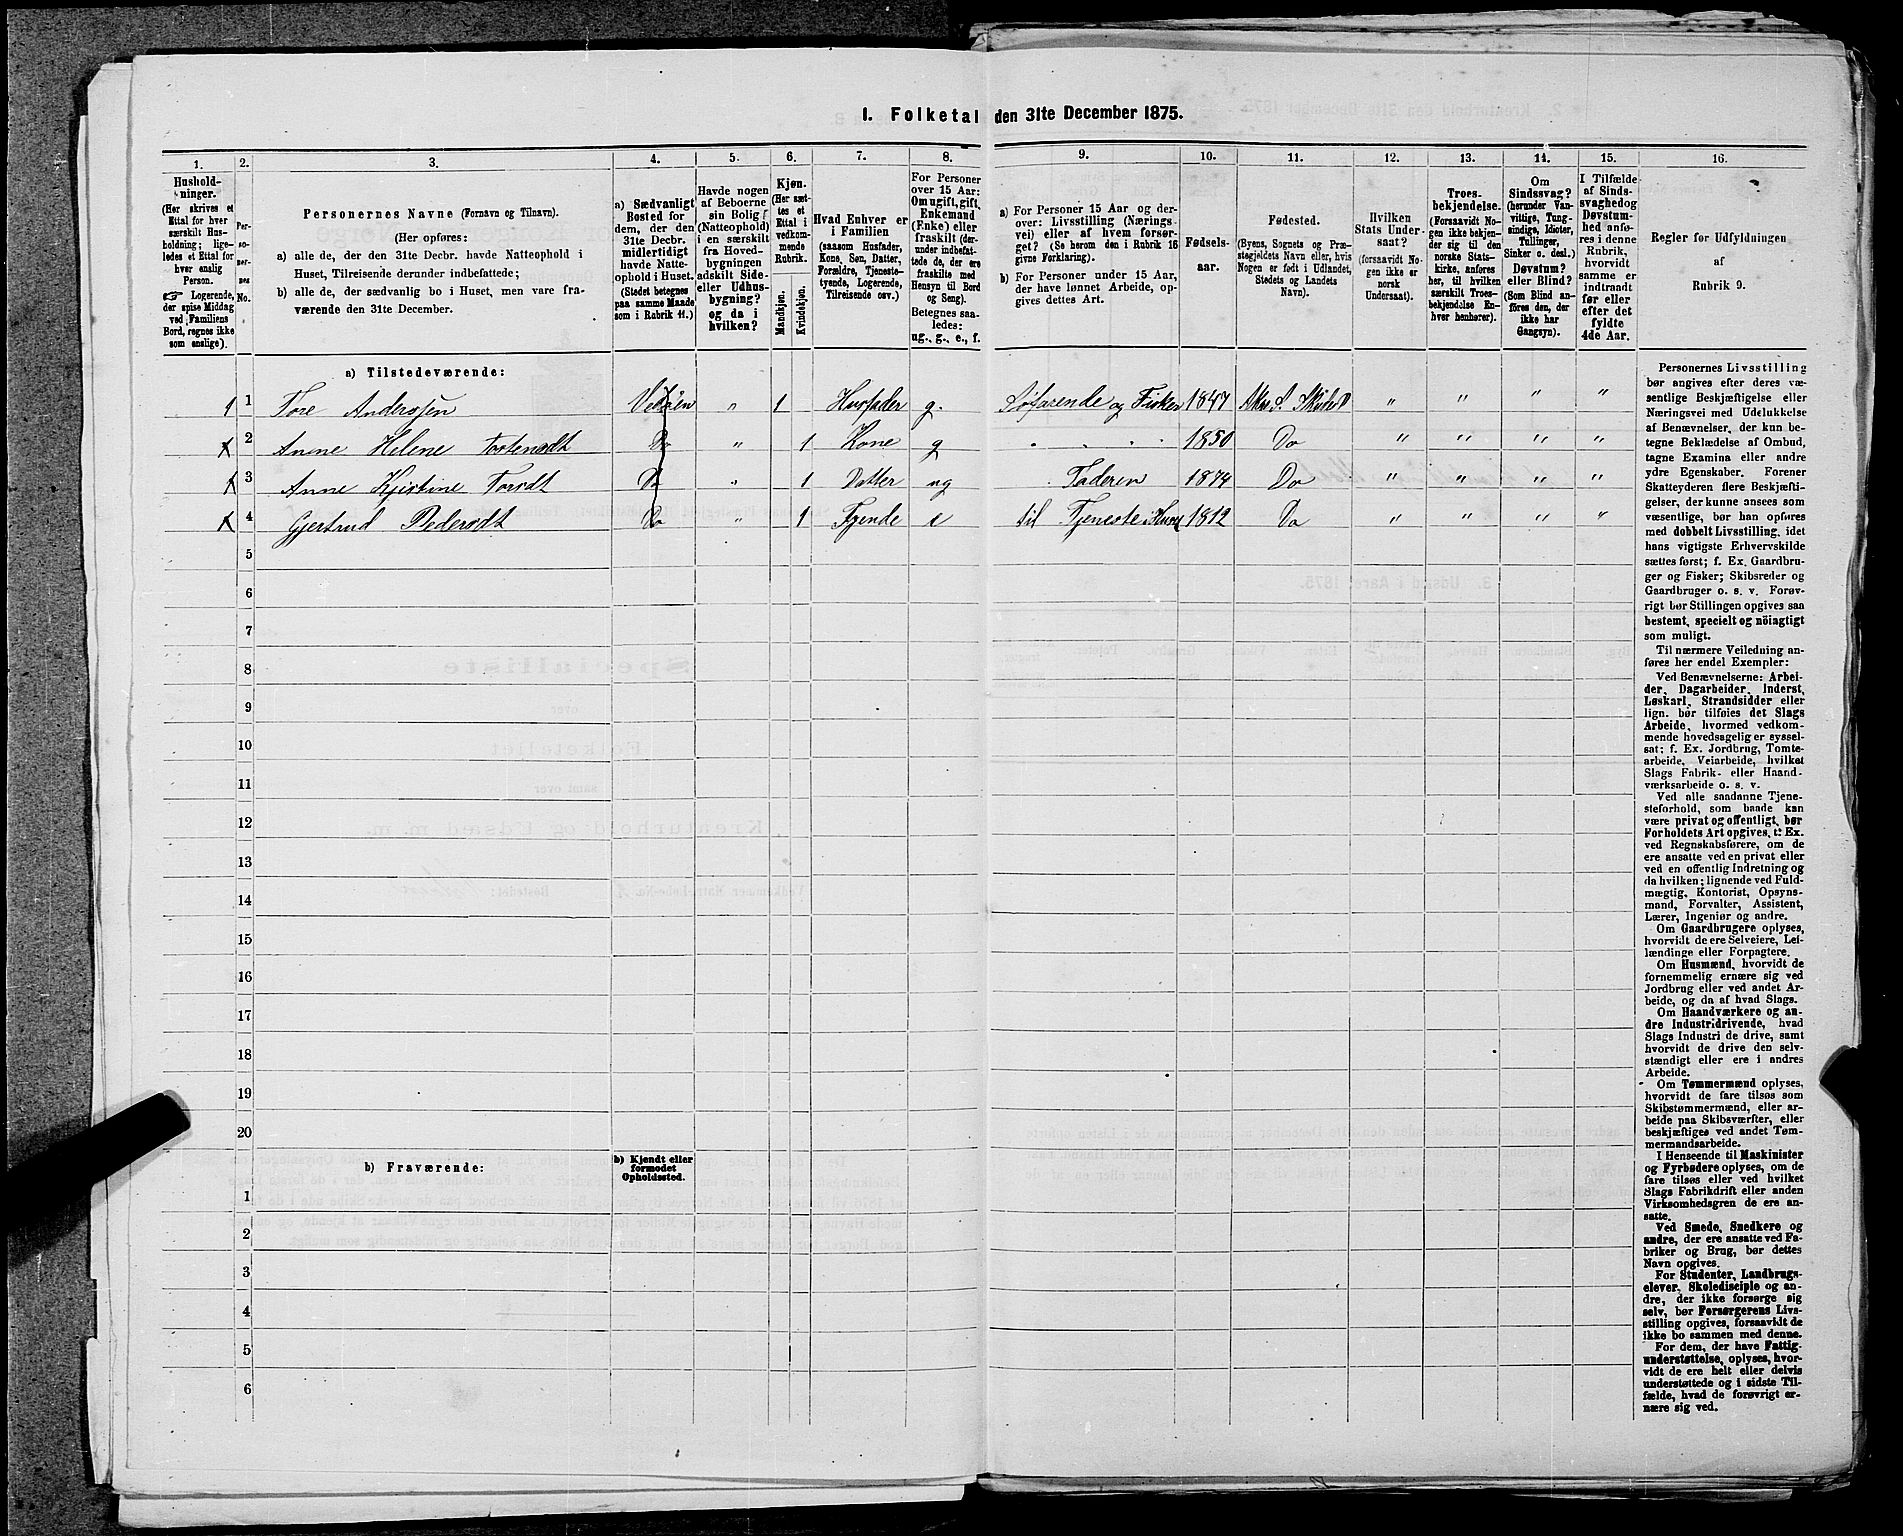 I. Folketal den 31te December 1875.
1. 2. 3. 4. 5. 6. 7. 8. 9. 10. 11. 12. 13. 14. 15. 16.
Hushold-
ninger.
(Her skrives et
Ettal for hver
særskilt Hus-
holdning; lige-
ledes et Ettal for
hver enslig
Person.
☞ Logerende,
der spise Middag
ved Familiens
Bord, regnes ikke
som enslige).
Per-
so-
ner-
nes
No.
Personernes Navne (Fornavn og Tilnavn).
(Her opføres:
a) alle de, der den 31te Decbr. havde Natteophold i
Huset, Tilreisende derunder indbefattede;
b) alle de, der sædvanlig bo i Huset, men vare fra-
værende den 31te December.
a) Sædvanligt
Bosted for
dem, der den
31te Decbr.
midlertidigt
havde Natte-
ophold i Huset.
(Stedet betegnes
paa samme Maade
som i Rubrik 11.)
Havde nogen
af Beboerne
sin Bolig
(Natteophold)
i en særskilt
fra Hoved-
bygningen
adskilt Side-
eller Udhus-
bygning?
og da i
hvilken?
Kjøn.
(Her sæt-
tes et
Ettal i
vedkom-
mende
Rubrik.
Mandkjøn.
Kvindekjøn.
Hvad Enhver er
i Familien
(saasom Husfader,
Kone, Søn, Datter,
Forældre, Tjeneste-
tyende, Logerende,
Tilreisende osv.)
For Personer
over 15 Aar:
Om ugift, gift,
Enkemand
(Enke) eller
fraskilt (der-
under indbefat-
tede de, der ere
fraskilte med
Hensyn til Bord
og Seng).
Betegnes saa-
ledes:
ug., g., e., f.
a) For Personer 15 Aar og der-
over: Livsstilling (Nærings-
vei) eller af hvem forsør-
get? (Se herom den i Rubrik 16
givne Forklaring).
b) For Personer under 15 Aar,
der have lønnet Arbeide, op-
gives dettes Art.
Fødsels-
aar.
Fødested.
(Byens, Sognets og Præ-
stegjeldets Navn eller, hvis
Nogen er født i Udlandet,
Stedets og Landets
Navn).
Hvilken
Stats Under-
saat?
(forsaavidt No-
gen ikke er
norsk
Undersaat).
Troes-
bekjendelse.
(Forsaavidt No-
gen ikke bekjen-
der sig til den
norske Stats-
kirke, anføres
her, til hvilken
særskilt Troes-
bekjendelse En-
hver henhører).
Om
Sindssvag?
(herunder Van-
vittige, Tung-
sindige, Idioter,
Tullinger,
Sinker o. desl.)
Døvstum?
eller Blind?
(Som Blind an-
føres den, der
ikke har
Gangsyn).
I Tilfælde
af Sinds-
svaghed og
Døvstum-
hed anfø-
res i denne
Rubrik,
hvorvidt
samme er
indtraadt
før eller
efter det
fyldte
4de Aar.
Regler for Udfyldningen
af
Rubrik 9.
a) Tilstedeværende:
1 1 Tore Anderssen " 1 Husfader g. Søfarende og Fisker 1847 " " " "
2 Anne Helene Do " 1 Kone g 1850 Do " " " "
3 Anne Kjistine Torsdt Do " 1 Datter ug Faderen 1874 Do " " " "
4 Gjertrud Pedersdt Do " 1 Tyende e til Tjeneste i Huset 1812 Do " " " "
5
6
7
8
9
10
11
12
13
14
15
16
17
18
19
20
b) Fraværende:
b) Kjendt eller
formodet
Opholdssted.
1
2
3
4
5
6
Personernes Livsstilling
bør angives efter deres væ-
sentlige Beskjæftigelse eller
Næringsvei med Udelukkelse
af Benævnelser, der kun be-
tegne Beklædelse af Ombud,
tagne Examina eller andre
ydre Egenskaber. Forener
Skatteyderen flere Beskjæfti-
gelser, der kunne ansees som
væsentlige, bør han opføres
med dobbelt Livsstilling, idet
hans vigtigste Erhvervskilde
sættes først; f. Ex. Gaardbru-
ger og Fisker; Skibsreder og
Gaardbruger o. s. v. Forøv-
rigt bør Stillingen opgives saa
bestemt, specielt og nöiagtigt
som muligt.
Til nærmere Veiledning an-
føres her endel Exempler:
Ved Benævnelserne: Arbei-
der, Dagarbeider, Inderst,
Løskarl, Strandsidder eller
lign. bør tilføies det Slags
Arbeide, hvormed vedkom-
mende hovedsagelig er syssel-
sat; f. Ex. Jordbrug, Tomte-
arbeide, Veiarbeide, hvilket
Slags Fabrik- eller Haand-
værksarbeide o. s. v.
Ved alle saadanne Tjene-
steforhold, som baade kan
være privat og offentligt, bør
Forholdets Art opgives, t. Ex.
ved Regnskabsførere, om de
ere ansatte ved en privat eller
ved en offentlig Indretning og
da hvilken; lignende ved Fuld-
mægtig, Kontorist, Opsyns-
mand, Forvalter, Assistent,
Lærer, Ingeniør og andre.
Om Gaardbrugere oplyses,
hvorvidt de ere Selveiere, Lei-
lændinge eller Forpagtere.
Om Husmænd, hvorvidt de
fornemmelig ernære sig ved
Jordbrug eller ved andet Ar-
beide, og da af hvad Slags.
Om Haandværkere og an-
dre Industridrivende, hvad
Slags Industri de drive, samt
hvorvidt de drive den selv-
stændigt eller ere i andres
Arbeide.
Om Tømmermænd oplyses,
hvorvidt de fare tilsøs som
Skibstømmermænd, eller ar-
beide paa Skibsværfter, eller
beskjæftiges ved andet Tøm-
mermandsarbeide.
I Henseende til Maskinister
og Fyrbødere oplyses, om de
fare tilsøs eller ved hvilket
Slags Fabrikdrift eller anden
Virksomhedsgren de ere an-
satte.
Ved Smede, Snedkere og
andre, der ere ansatte ved Fa-
briker og Brug, bør dettes
Navn opgives.
For Studenter, Landbrugs-
elever, Skoledisciple og an-
dre, der ikke forsørge sig
selv, bør Forsørgerens Livs-
stilling opgives, forsaavidt de
ikke bo sammen med denne.
For dem, der have Fattig-
understøttelse, oplyses, hvor-
vidt de ere helt eller delvis
understøttede og i sidste Til-
fælde, hvad de forøvrigt er-
nære sig ved.